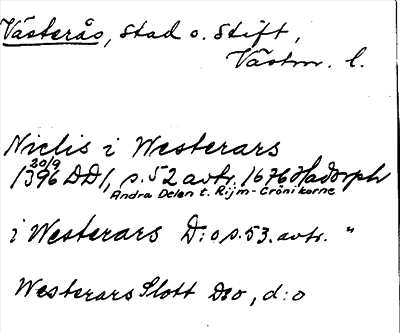 Västerås, stad o. Stift,
Västm. l.
Niclis i Westerars
20/9
1396 DD1, s. 52 avtr. 1676 Hadorph
Andra Delen t. Rijm-Crönikorne
i Westerars D:o s. 53. avtr. "
Westerars Slott D:o, d:o